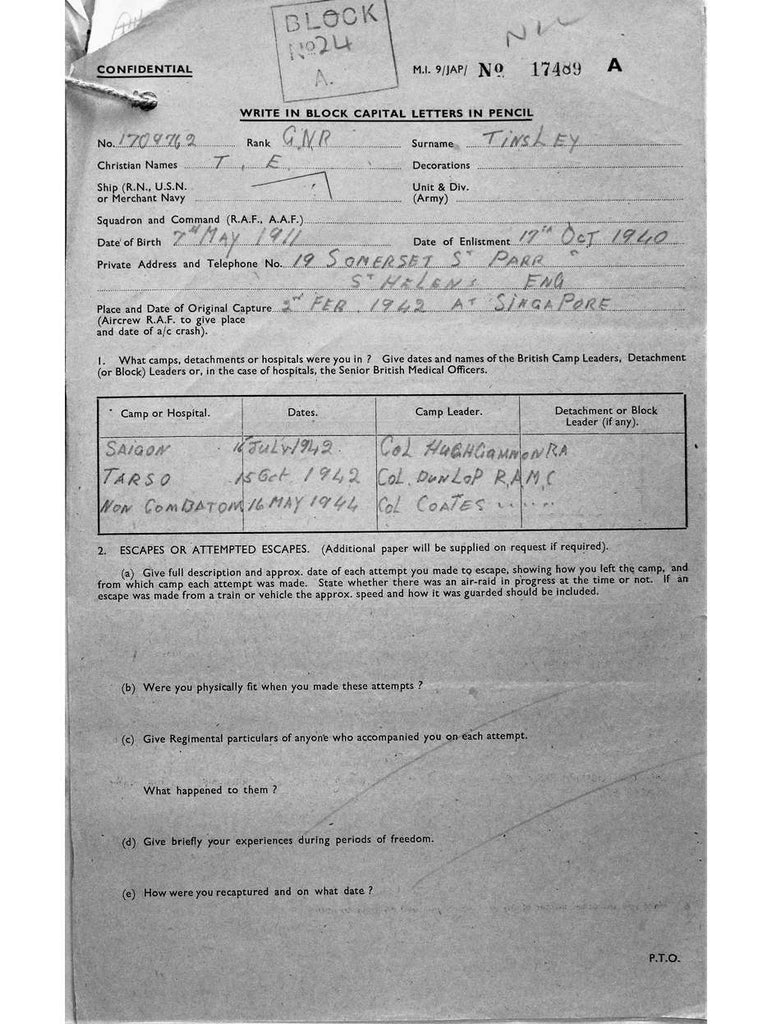 BLOCK
No 24
A.
NIL
CONFIDENTIAL
M.I. 9/JAP/ No 17489 A
WRITE IN BLOCK CAPITAL LETTERS IN PENCIL
No. 1709762 Rank GNR Surname TINSLEY
Christian Names T, E. Decorations
Ship (R.N., U.S.N. or Merchant Navy
Unit & Div. (Army)
Squadron and Command (R.A.F., A.A.F.)
Date of Birth 7TH MAY 1911 Date of Enlistment 17TH OCT 1940
Private Address and Telephone No. 19 SOMERSET ST PARR
ST HELENS ENG
Place and Date of Original Capture 2nd FEB. 1942 AT SINGAPORE
(Aircrew R.A.F. to give place
and date of a/c crash).
1. What camps, detachments or hospitals were you in ? Give dates and names of the British Camp Leaders, Detachment
(or Block) Leaders or, in the case of hospitals, the Senior British Medical Officers.
Camp or Hospital. Dates. Camp Leader. Detachment or Block Leader (if any).
SAIGON JULY 1942. COL HUGH GAMMON RA
TARSO 15 Oct 1942 COL. DUNLOP R,A,M,C
NON COMBATOM 16 MAY 1944 COL COATES
2. ESCAPES OR ATTEMPTED ESCAPES. (Additional paper will be supplied on request if required).
(a) Give full description and approx. date of each attempt you made to escape, showing how you left the camp, and
from which camp each attempt was made. State whether there was an air-raid in progress at the time or not. If an
escape was made from a train or vehicle the approx. speed and how it was guarded should be included.
(b) Were you physically fit when you made these attempts ?
(c) Give Regimental particulars of anyone who accompanied you on each attempt.
What happened to them ?
(d) Give briefly your experiences during periods of freedom.
(e) How were you recaptured and on what date ?
P.T.O.